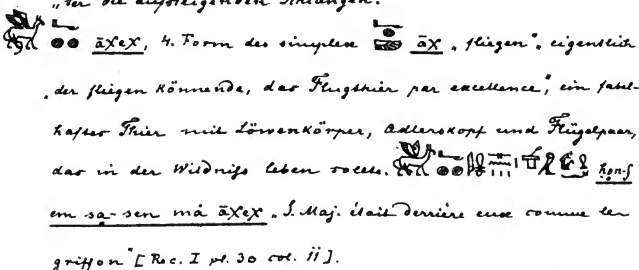 „ter die aufsteigenden Schlangen.
āχeχ, 4. Form des simplex āχ „fliegen“, eigentlich
„der fliegen Könnende, das Flugthier par excellence“, ein fabel-
haftes Thier mit Löwenkörper, Adlerskopf und Flügelpaar,
das in der Wildniss leben sollte. ḥon-f
em sa-sen mà āχeχ „S. Maj. était derrière eux comme le
griffon“ [Rec. I pl. 30 col. ii].